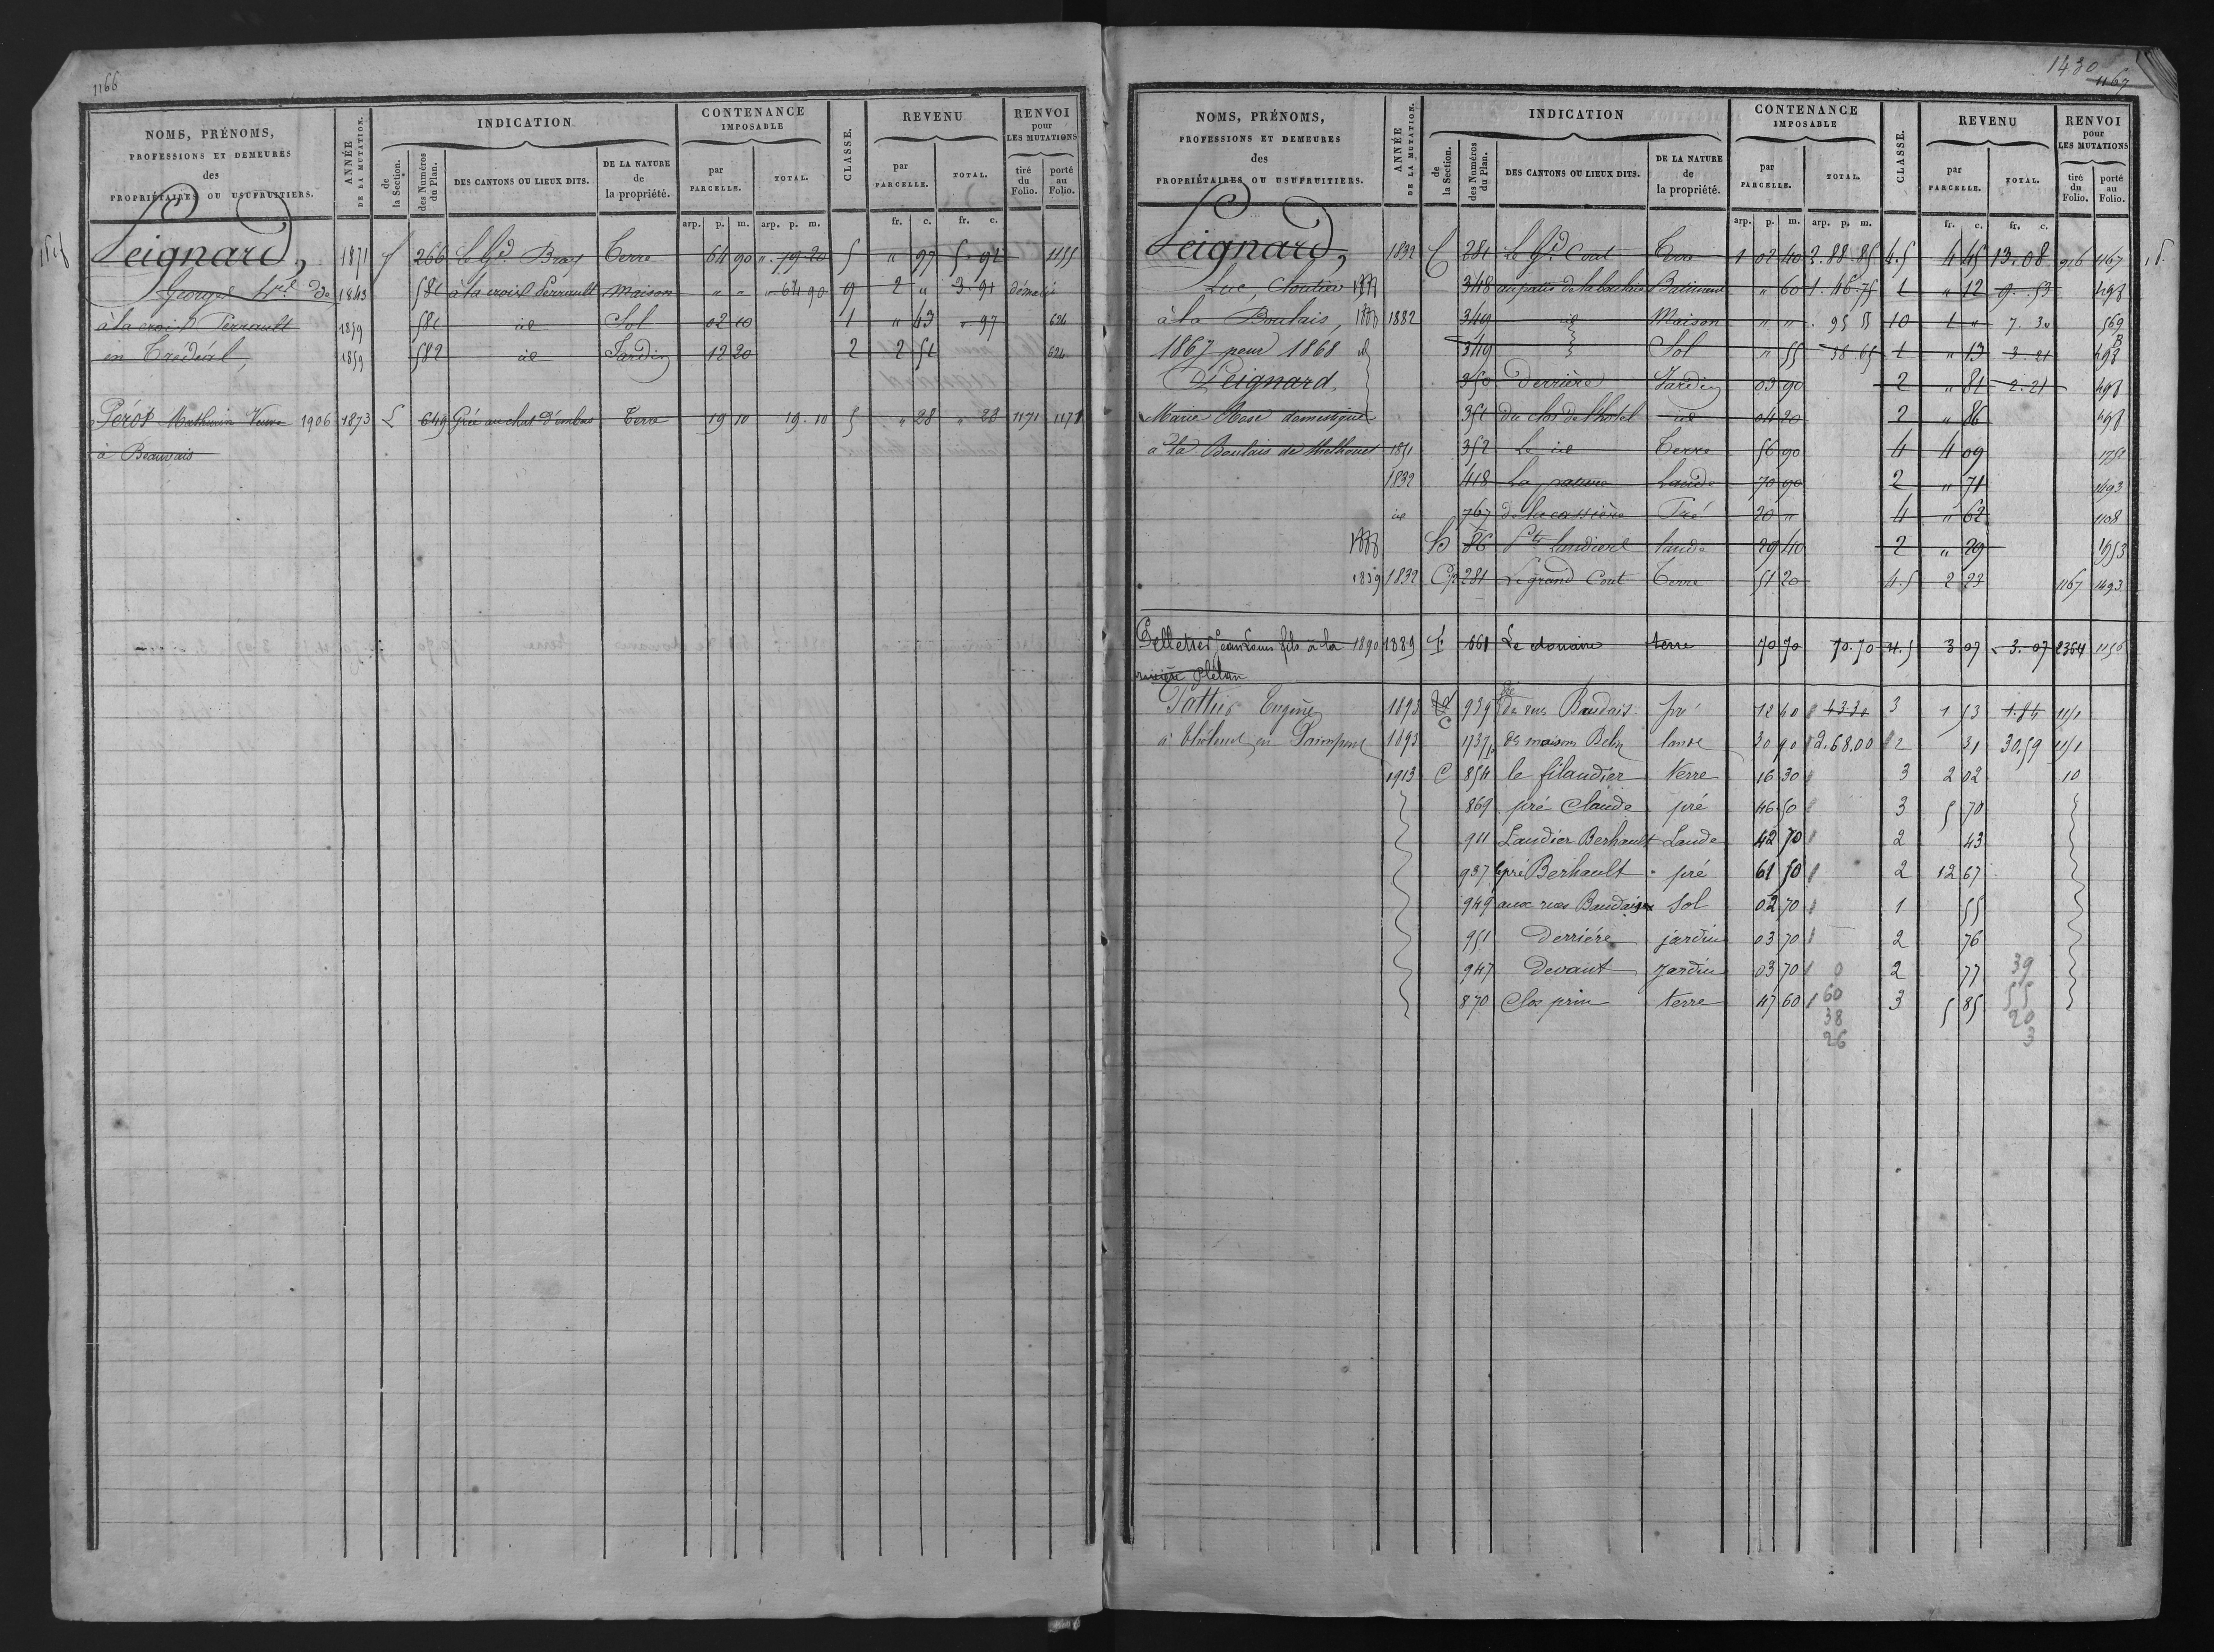 1166
NOMS, PRÉNOMS, PROFESSIONS ET DEMEURES des PROPRIÉTAIRES OU USUFRUITIERS. ANNÉE DE LA MUTATION. INDICATION de la Section. des Numéros du Plan. DES CANTONS OU LIEUX DITS. DE LA NATURE de la propriété. CONTENANCE IMPOSABLE par PARCELLE. TOTAL. CLASSE. REVENU par PARCELLE. TOTAL. RENVOI pour LES MUTATIONS tiré du Folio. porté au Folio.
arp. p. m. arp. p. m. fr. c. fr. c.
Peignard, 1871 266 le Gd. Bray Terre 64 90 " 79 20 5 " 97 5 92 1155
Georges 1843 581 à la croix Perrault Maison " " " 64 90 9 2 " 3 91 démolie
à la croix Perrault 1859 581 id Sol 02 10 1 " 43 " 97 624
en Tredéal, 1859 582 id Jardin 12 20 2 2 51 624
Pérot Mathurin Veuve 1906 1873 L 649 Grée au chat d'embas Terre 19 10 19. 10 5 " 28 " 28 1171 1171
à Beauvais
1430
1167
NOMS, PRÉNOMS, PROFESSIONS ET DEMEURES des PROPRIÉTAIRES OU USUFRUITIERS. ANNÉE DE LA MUTATION. INDICATION de la Section. des Numéros du Plan. DES CANTONS OU LIEUX DITS. DE LA NATURE de la propriété. CONTENANCE IMPOSABLE par PARCELLE. TOTAL. CLASSE. REVENU par PARCELLE. TOTAL. RENVOI pour LES MUTATIONS tiré du Folio. porté au Folio.
arp. p. m. arp. p. m. fr. c. fr. c.
Peignard, 1832 C 281 le Gd. Cout Terre 1 02 40 2. 88. 85 4.5 4 45 13. 08 916 1167
Luc, Cloutier 348 au patis de la boulais Batiment " 60 1. 46. 75 1 " 12 9. 53 498
à la Boulais, 1882 349 id Maison " " . 95 55 10 1 " 7. 30 569
1867 pour 1868 349 Sol " 55 38. 65 1 " 13 3. 21 498
Peignard 350 Derrière Jardin 03 90 2 " 81 2. 21 498
Marie Rose domestique 351 du clos de l'hotel id 04 20 2 " 86 498
à la Boulais de thelhouet 1851 352 Le id Terre 56 90 4 4 09 1751
1832 418 La Lande 70 90 2 " 71 1493
id 767 Pré 20 " 4 " 62 1108
B 86 Landier lande 29 40 2 " 29 1953
1859 1832 281 Le grand Cout Terre 51 20 4.5 2 23 1167 1493
Pelletier Jean Louis fils à la 1890 1889 661 Le douaire terre 70 70 70. 70 4.5 3 07 3. 07 2364 1156
rivière Plélan
Pattier Eugène 1893 C 939 des rues Baudais pré 12 40 43 30 3 1 53 1.84
à thélouet en Paimpont 1893 1737 des maisons Belin lande 30 90 2.68.00 2 31 30.59
1913 C 854 le filandier Terre 16 30 3 2 02 10
869 pré Claude pré 46 50 3 5 70
911 Landier Berhault Lande 42 70 2 43
937 le pré Berhault pré 61 50 2 12 67
949 aux rues Baudais Sol 02 70 1 55
951 Derrière jardin 03 70 2 76
947 Devant Jardin 03 70 0 2 77 39
870 Clos prin terre 47 60 60 3 5 85 55
38 20
26 3